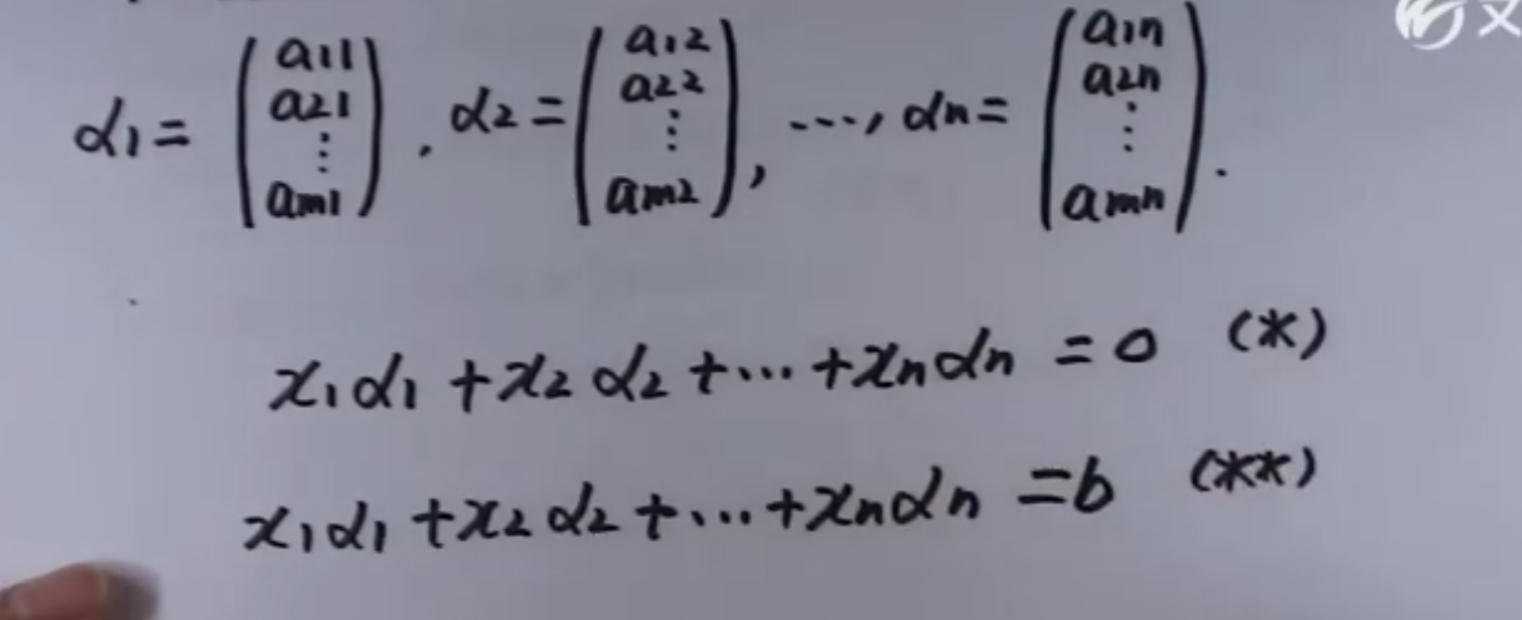 α1 = (a11 a21 ⋮ am1), α2 = (a12 a22 ⋮ am2), ..., αn = (a1n a2n ⋮ amn).
x1α1 + x2α2 + ... + xnαn = 0 (*)
x1α1 + x2α2 + ... + xnαn = b (**)